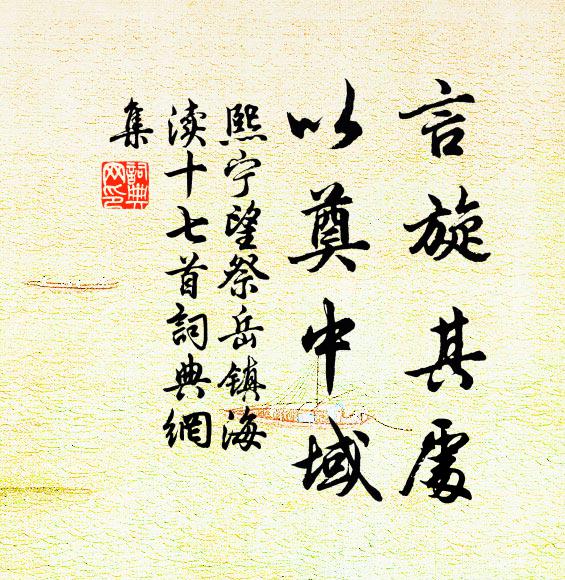 言旋其处
以奠中域
熙宁望祭岳镇海
渎十七首詞典網
集
詞典
网印